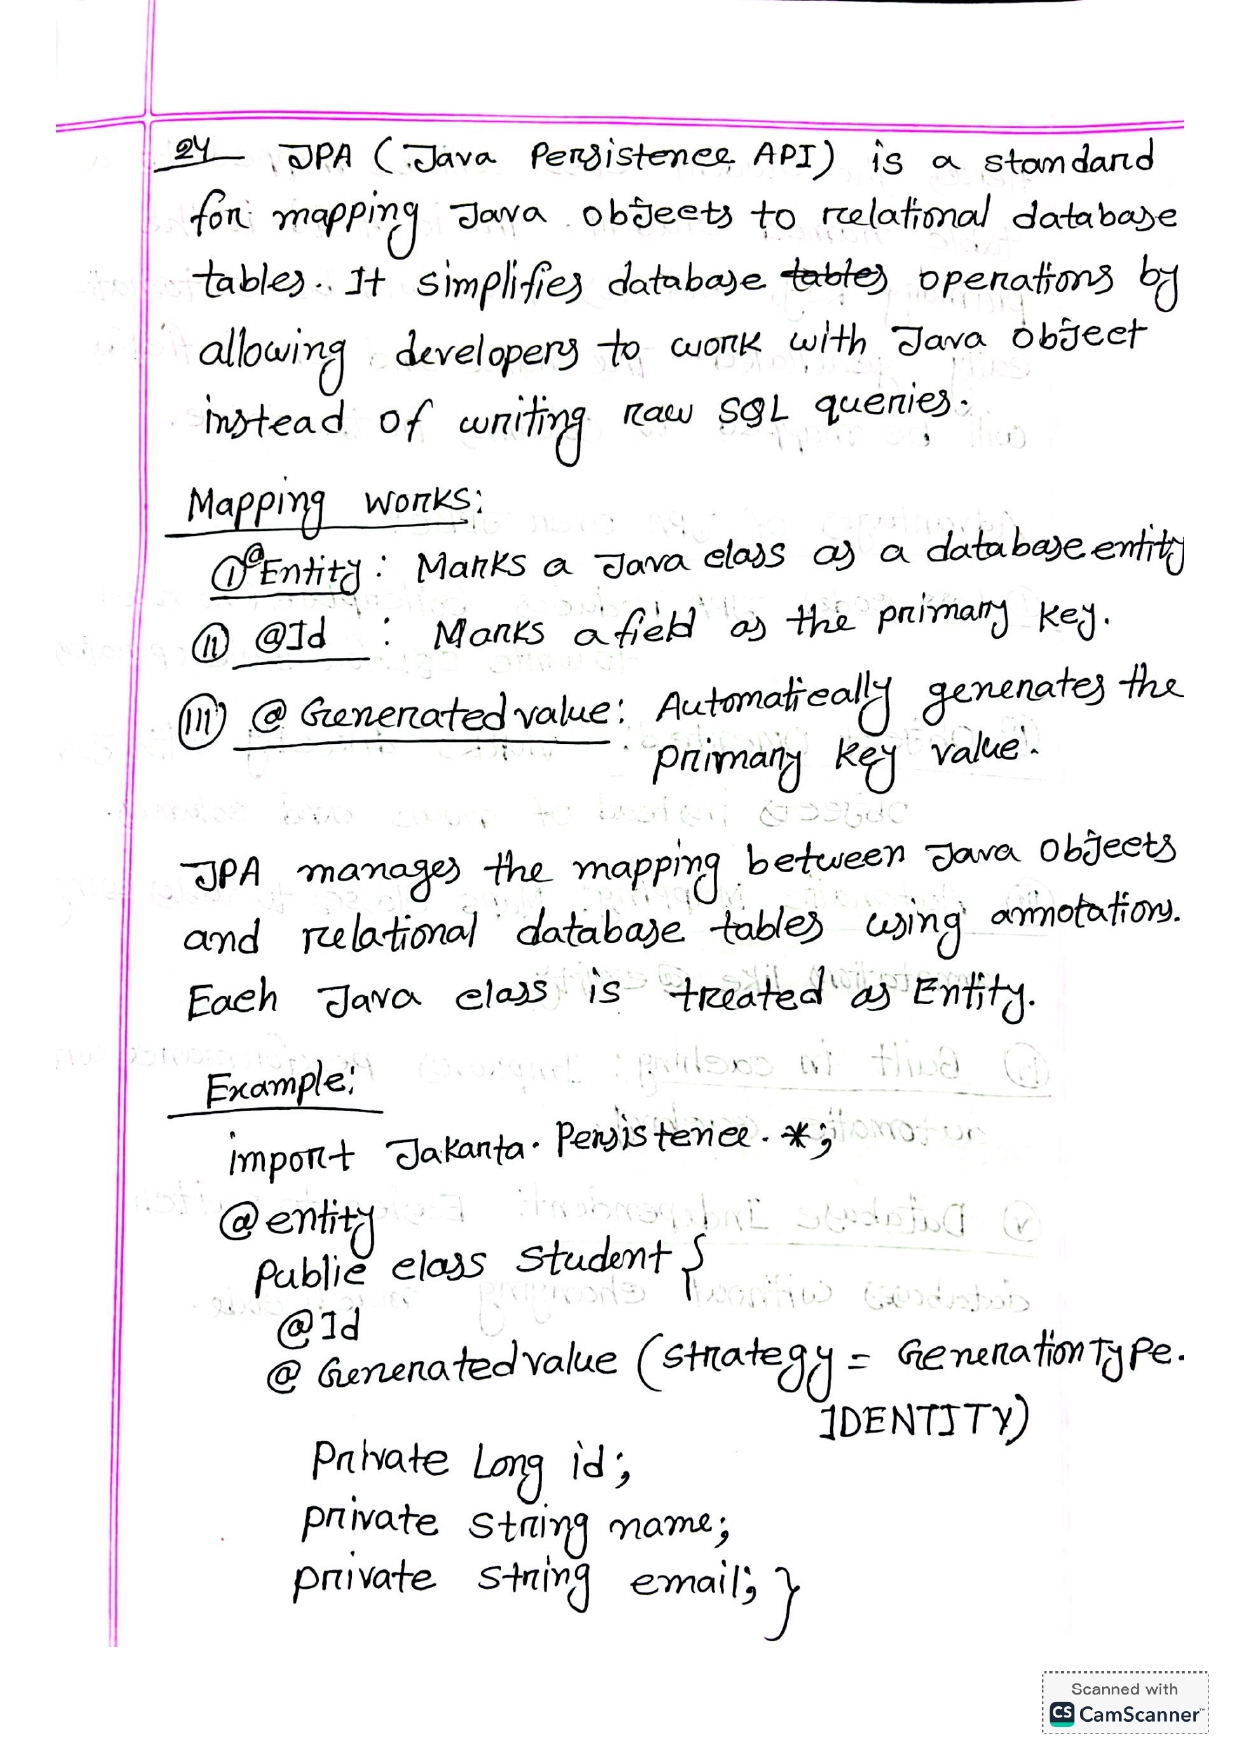 24 JPA (Java Persistence API) is a standard
for mapping Java objects to relational database
tables. It simplifies database tables operations by
allowing developers to work with Java object
instead of writing raw SQL queries.
Mapping works:
(i) @Entity : Marks a Java class as a database entity
(ii) @Id : Marks a field as the primary key.
(iii) @ Generated value : Automatically generates the
primary key value.
JPA manages the mapping between Java objects
and relational database tables using annotations.
Each Java class is treated as Entity.
Example:
import Jakarta. Persistence. *;
@entity
Public class Student {
@Id
@ Generated value (strategy = GenerationType.
IDENTITY)
Private Long id;
private string name;
private string email; }
Scanned with
CS CamScanner